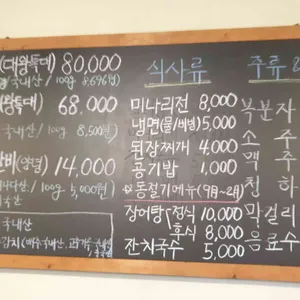 (대왕특대) 80,000
국내산 / 100g 8,696원)
왕특대) 68,000
국내산 / 100g 8,500원)
갈비(양념) 14,000
/ 100g 5,000원)
국내산
김치(배추국내산, 고춧가루, 국내산
식사류
미나리전 8,000
냉면(물/비빔) 5,000
된장찌개 4,000
공기밥 1,000
※동절기메뉴(9月~2月)
장어탕(정식 10,000
후식 8,000
잔치국수 5,000
주류
복분자
소주
맥주
천하
막걸리
음료수